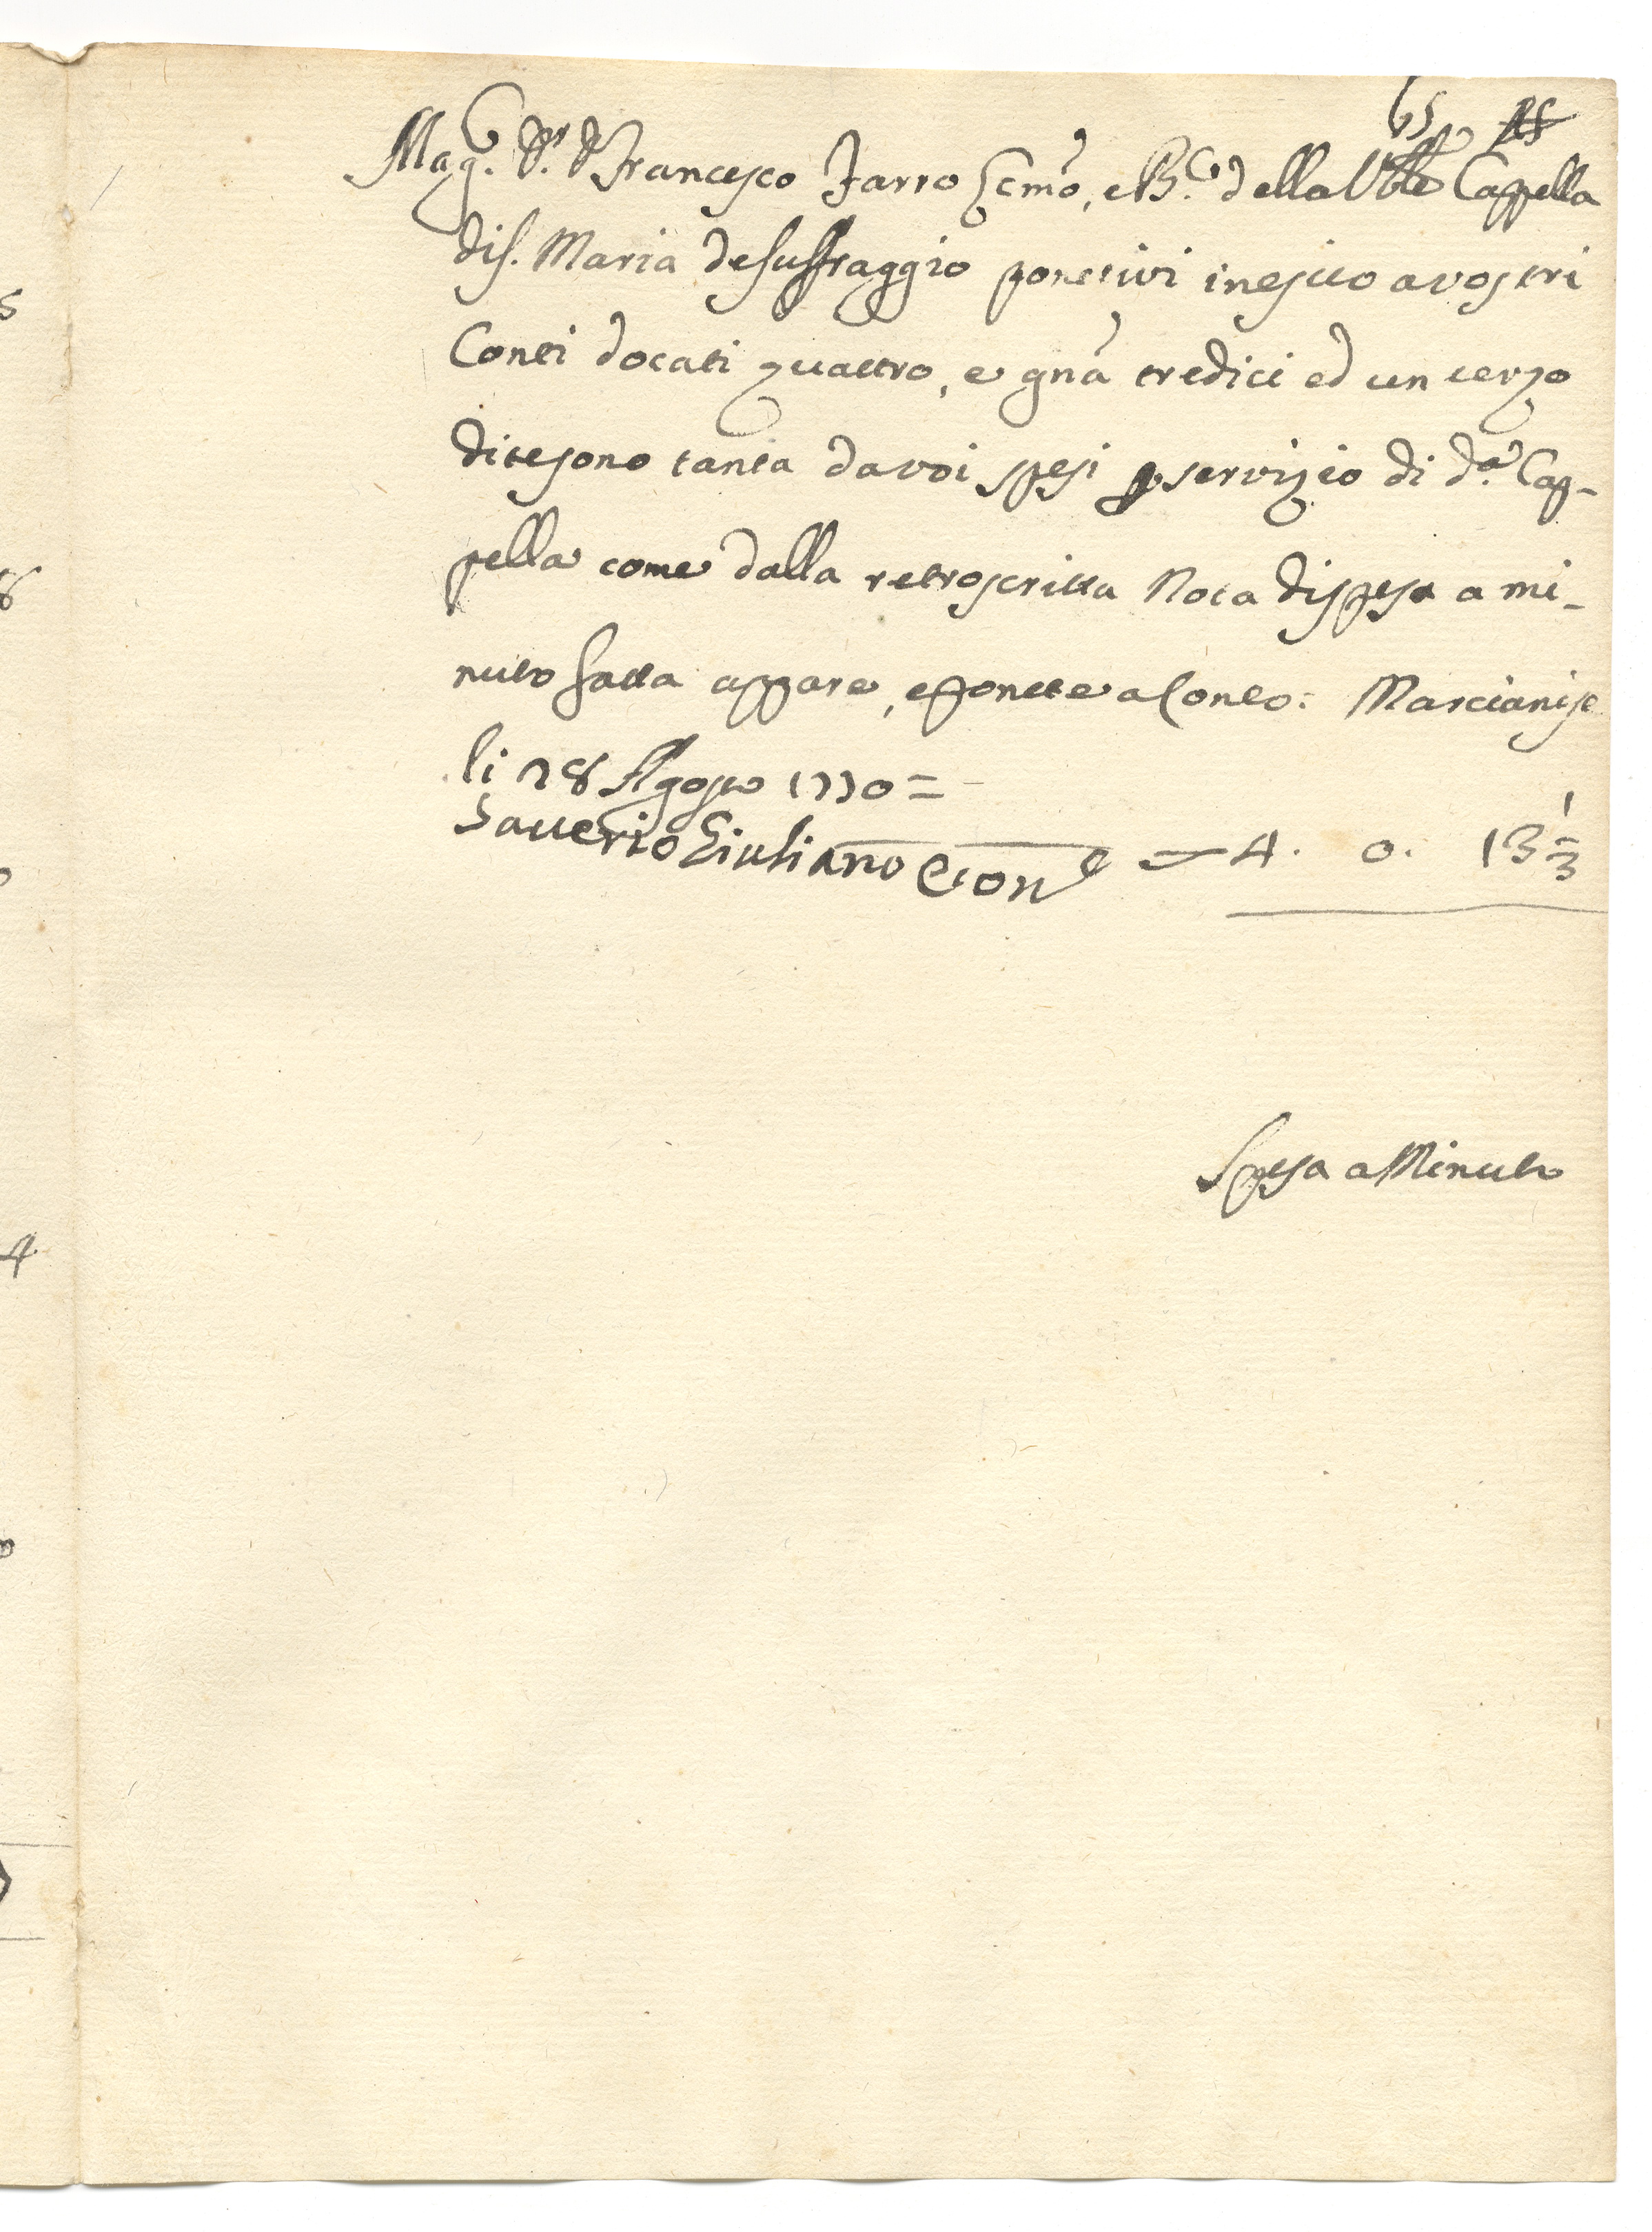 65
Mag.co D.r D. Francesco Farro Ecmo, e B.e della Vble Cappella
di S. Maria de Suffraggio ponetivi in esito a vostri
Conti docati quattro, e gna tredici ed un terzo
di tesono tanta da voi spesi p servizio di d.a Cap-
pella come dalla retroscritta Nota di spesa a mi-
nuto fatta appare, e ponete a Conto: Marcianise
li 28 Agosto 1770 =
Saverio Giuliano Econ.e — 4. 0. 13 1/3
Spesa a Minuto